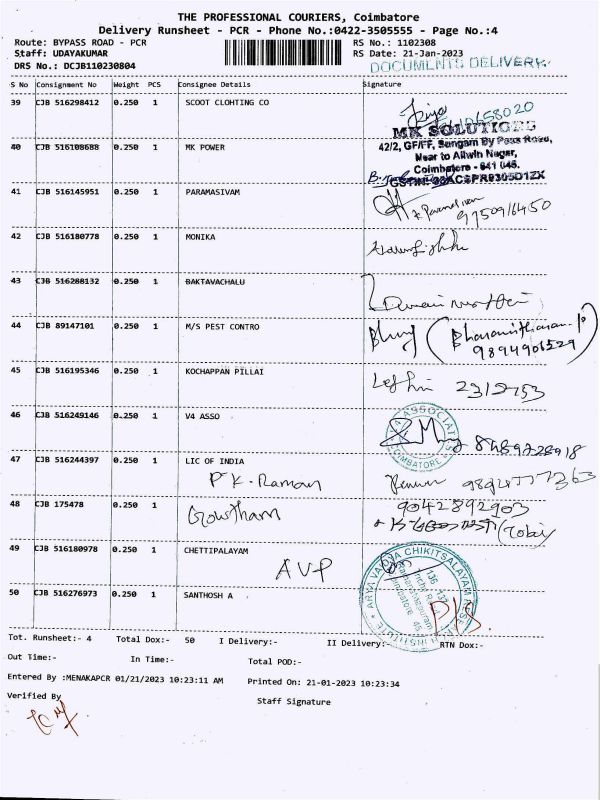 THE PROFESSIONAL COURIERS, Coimbatore
Delivery Runsheet - PCR - Phone No.:0422-3505555 - Page No.:4
Route: BYPASS ROAD - PCR RS No.: 1102308
Staff: UDAYAKUMAR RS Date: 21-Jan-2023
DRS No.: DCJB110230804 DOCUMENTS DELIVERY
S No Consignment No Weight PCS Consignee Details Signature
39 CJB 516298412 0.250 1 SCOOT CLOHTING CO
MK SOLUTIONS
40 CJB 516108688 0.250 1 MK POWER 42/2, GF/FF, Sungam By Pass Road,
Near to Alwin Nagar,
Coimbatore - 641 045.
41 CJB 516145951 0.250 1 PARAMASIVAM
9750916450
42 CJB 516180778 0.250 1 MONIKA
43 CJB 516288132 0.250 1 BAKTAVACHALU
44 CJB 89147101 0.250 1 M/S PEST CONTRO
9894906529
45 CJB 516195346 0.250 1 KOCHAPPAN PILLAI
46 CJB 516249146 0.250 1 V4 ASSO V4 ASSOCIATES COIMBATORE
8489228918
47 CJB 516244397 0.250 1 LIC OF INDIA
P K. Raman
48 CJB 175478 0.250 1 9042892903
Gowtham
49 CJB 516180978 0.250 1 CHETTIPALAYAM
AVP ARYA VAIDYA CHIKITSALAYAM
50 CJB 516276973 0.250 1 SANTHOSH A
Tot. Runsheet:- 4 Total Dox:- 50 I Delivery:- II Delivery:- RTN Dox:-
Out Time:- In Time:- Total POD:-
Entered By :MENAKAPCR 01/21/2023 10:23:11 AM Printed On: 21-01-2023 10:23:34
Verified By Staff Signature